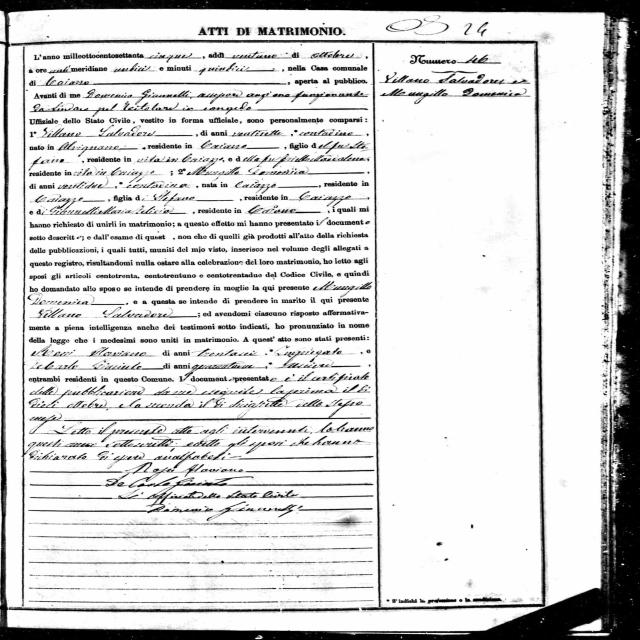 ATTI DI MATRIMONIO.
24
L'anno milleottocentosettanta cinque, addì ventuno di ottobre,
a ore anti meridiane undici e minuti quindici, nella Casa comunale
di Caiazzo, aperta al pubblico.
Avanti di me Domenico Giannelli, assessore anziano funzionante
da Sindaco pel titolare in congedo
Uffiziale dello Stato Civile, vestito in forma uffiziale, sono personalmente comparsi:
1° Villano Salvadore, di anni ventisette, contadino,
nato in Alvignano, residente in Caiazzo, figlio del fu Ste
fano, residente in vita in Caiazzo, e della fu
residente in vita in Caiazzo; 2° Mungillo Domenica
di anni ventidue, contadina, nata in Caiazzo, residente in
Caiazzo, figlia di Stefano, residente in Caiazzo,
e di Giannelli Maria Felicia, residente in Caiazzo, i quali mi
hanno richiesto di unirli in matrimonio; a questo effetto mi hanno presentato i document o
sotto descritto; e dall'esame di quest , non che di quelli già prodotti all'atto della richiesta
delle pubblicazioni, i quali tutti, muniti del mio visto, inserisco nel volume degli allegati a
questo registro, risultandomi nulla ostare alla celebrazione del loro matrimonio, ho letto agli
sposi gli articoli centotrenta, centotrentuno e centotrentadue del Codice Civile, e quindi
ho domandato allo sposo se intende di prendere in moglie la qui presente Mungillo
Domenica, e a questa se intende di prendere in marito il qui presente
Villano Salvadore; ed avendomi ciascuno risposto affermativamente
a piena intelligenza anche dei testimoni sotto indicati, ho pronunziato in nome
della legge che i medesimi sono uniti in matrimonio. A quest'atto sono stati presenti:
Flaviano di anni trentasei, Impiegato, e
De Carlo Giacinto di anni quarantuno,
entrambi residenti in questo Comune. I document presentato è il certificato
delle pubblicazioni da me eseguite la prima il dì
dieci ottobre, e la seconda il dì diciassette dello stesso
mese
Letto il presente atto agli intervenuti, lo hanno
questi meco sottoscritto eccetto gli sposi che hanno
dichiarato di essere analfabeti
Flaviano
De Carlo Giacinto
L'uffiziale dello Stato Civile
Domenico Giannelli
Numero 46
Villano Salvadore e
Mungillo Domenica
* S'indichi la professione o la condizione.